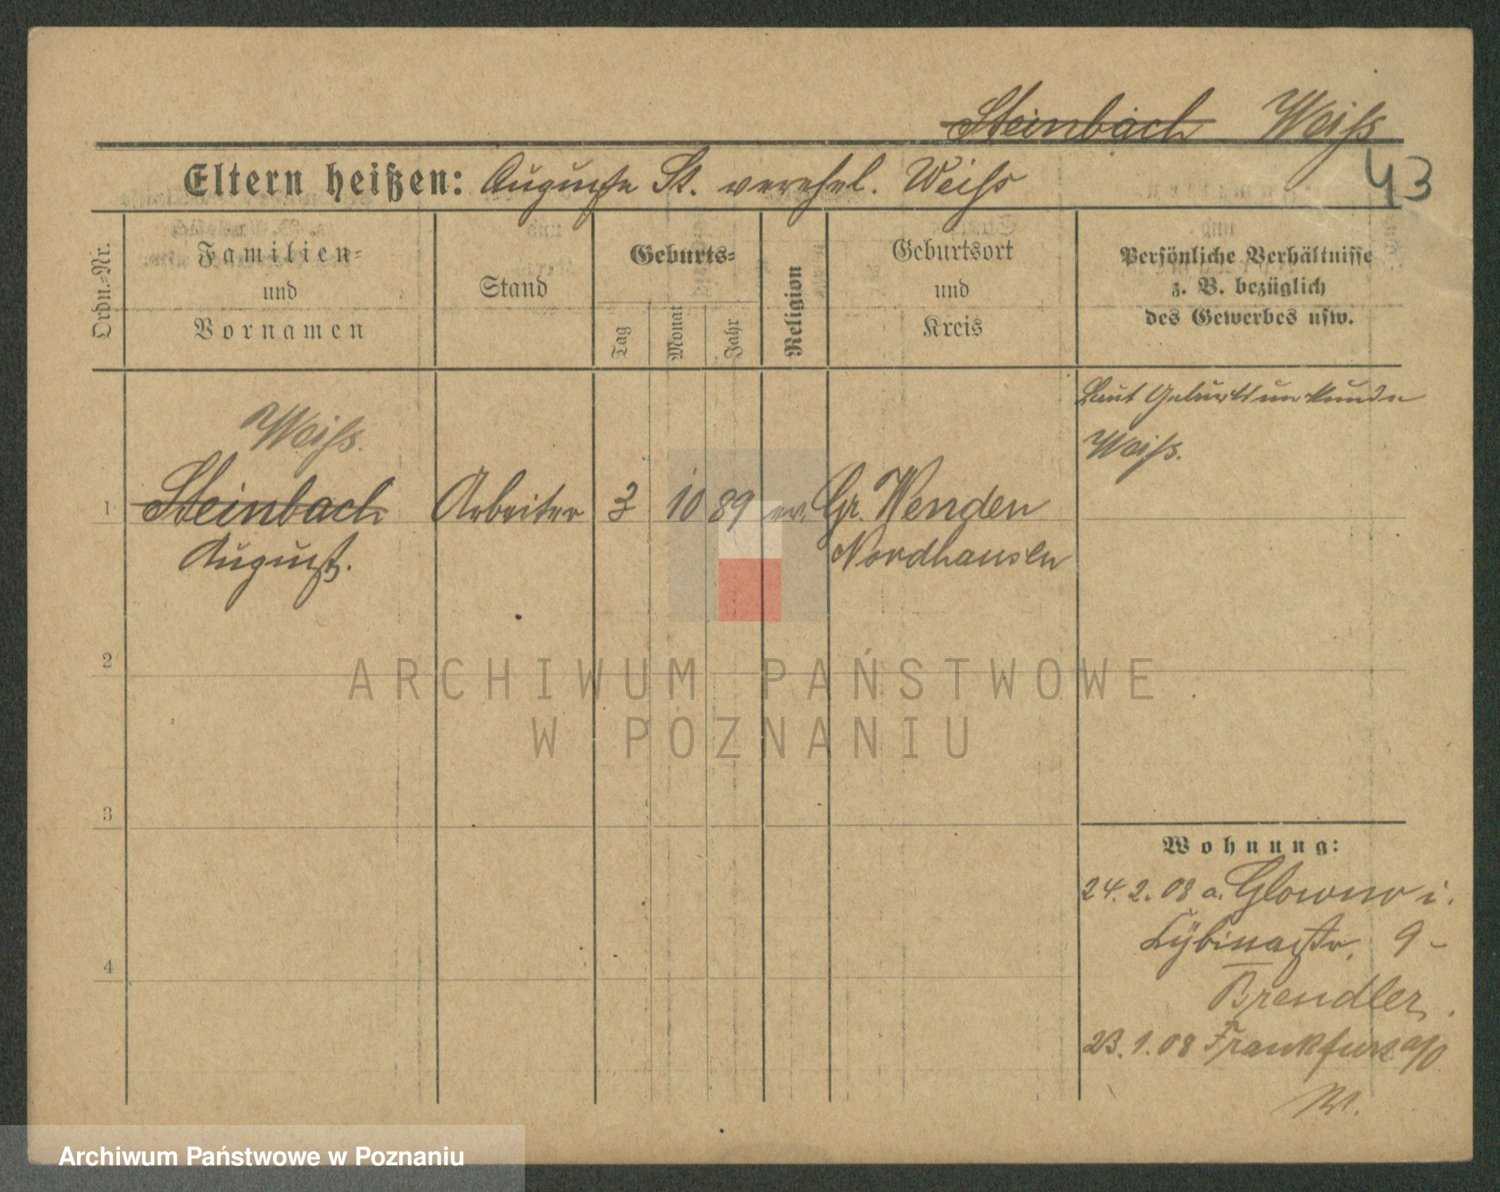 Steinbach Weiß
43
Eltern heißen: Auguste St. verehel. Weiß
Ordn.-Nr.
Familien-
und
Vornamen
Stand
Geburts-
Tag
Monat
Jahr
Religion
Geburtsort
und
Kreis
Persönliche Verhältnisse
z. B. bezüglich
des Gewerbes usw.
Laut Geburtsurkunde
Weiß.
Weiß.
1 Steinbach Arbeiter 3 10 89 ev. Gr. Wenden
August. Nordhausen
2
3
4
Wohnung:
24. 2. 08 a. Glowno i.
Cybinastr. 9 -
Brendler.
23. 1. 08 Frankfurt a/O
ARCHIWUM PAŃSTWOWE
W POZNANIU
Archiwum Państwowe w Poznaniu